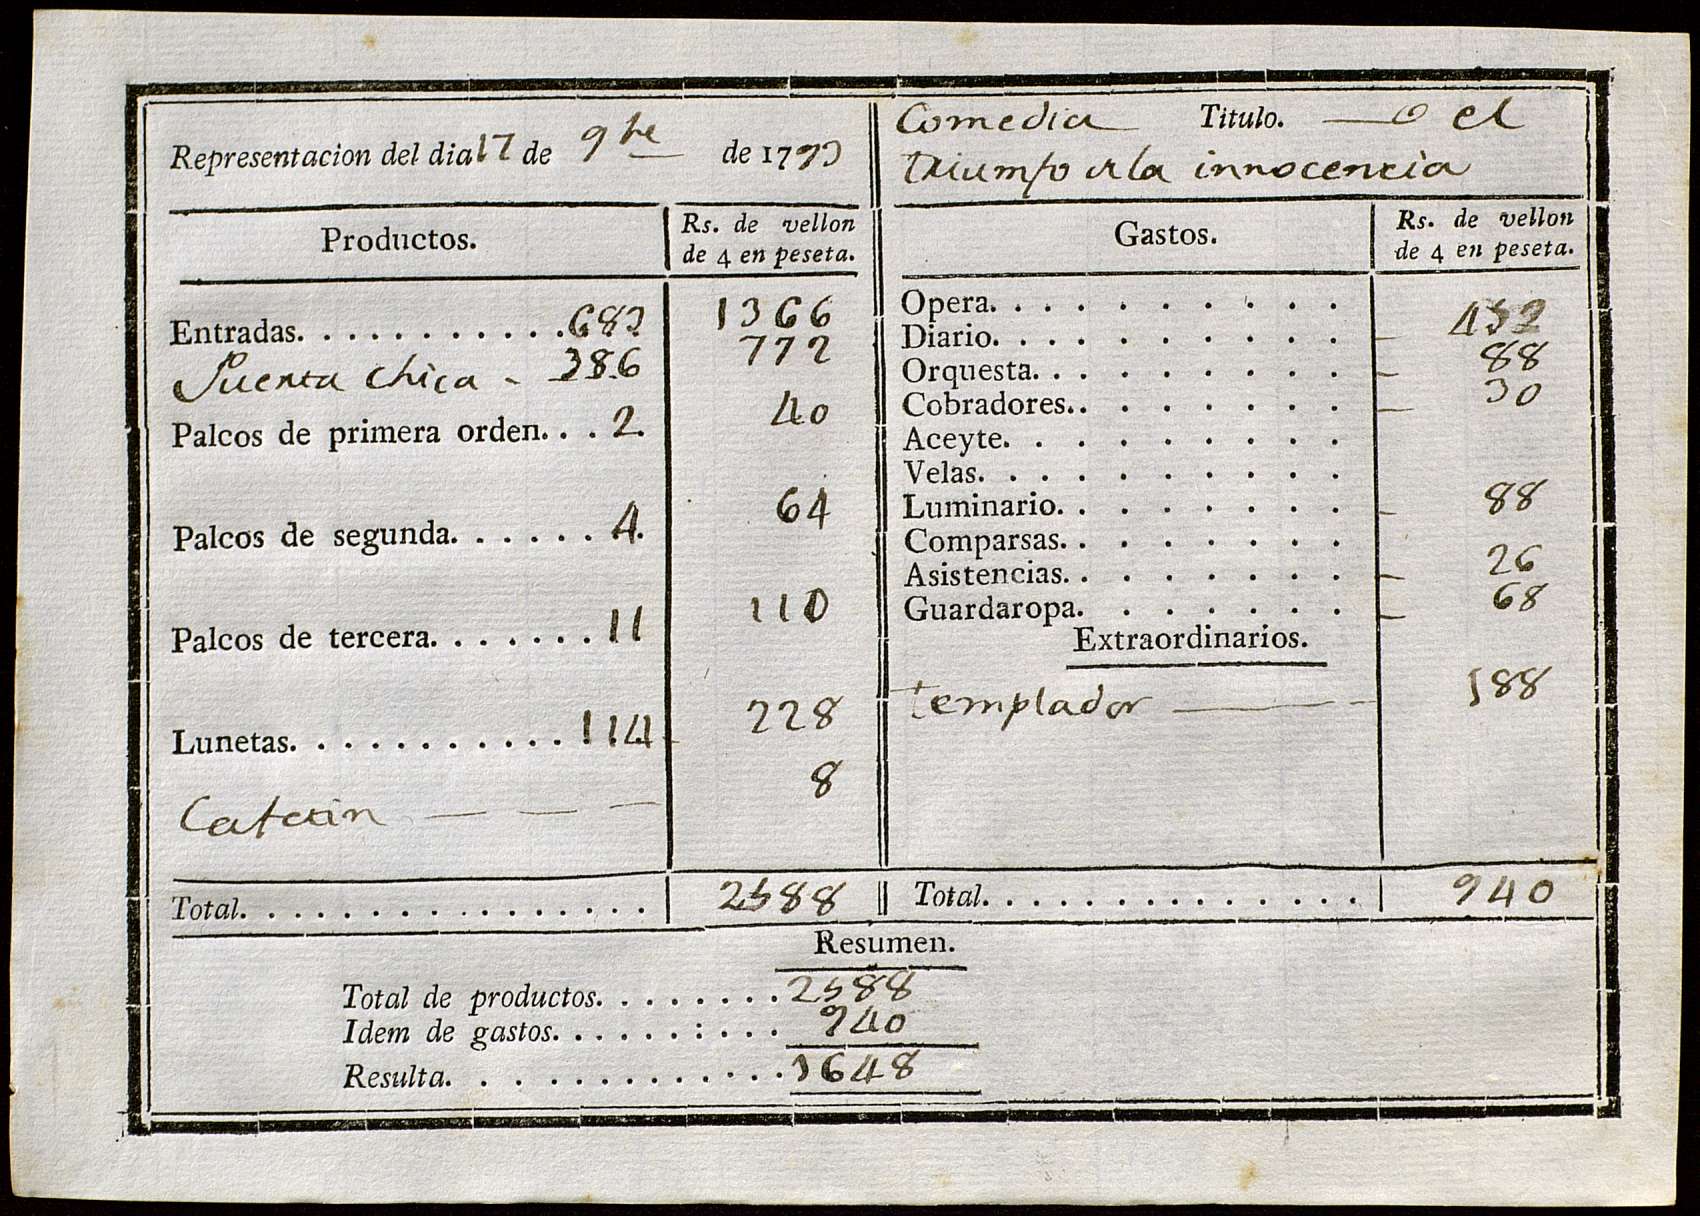 Representacion del dia 17 de 9bre de 1793
Comedia Titulo. — O el
triumfo de la innocencia
Productos. Rs. de vellon de 4 en peseta.
Gastos. Rs. de vellon de 4 en peseta.
Entradas. 683 1366
Puerta chica - 386 772
Palcos de primera orden. 2. 40
Palcos de segunda. 4. 64
Palcos de tercera. 11 110
Lunetas. 114 228
8
Total. 2588
Opera.
Diario. 452
Orquesta. 88
Cobradores. 30
Aceyte.
Velas.
Luminario. 88
Comparsas.
Asistencias. 26
Guardaropa. 68
Extraordinarios.
templador 188
Total. 940
Resumen.
Total de productos. 2588
Idem de gastos. 940
Resulta. 1648